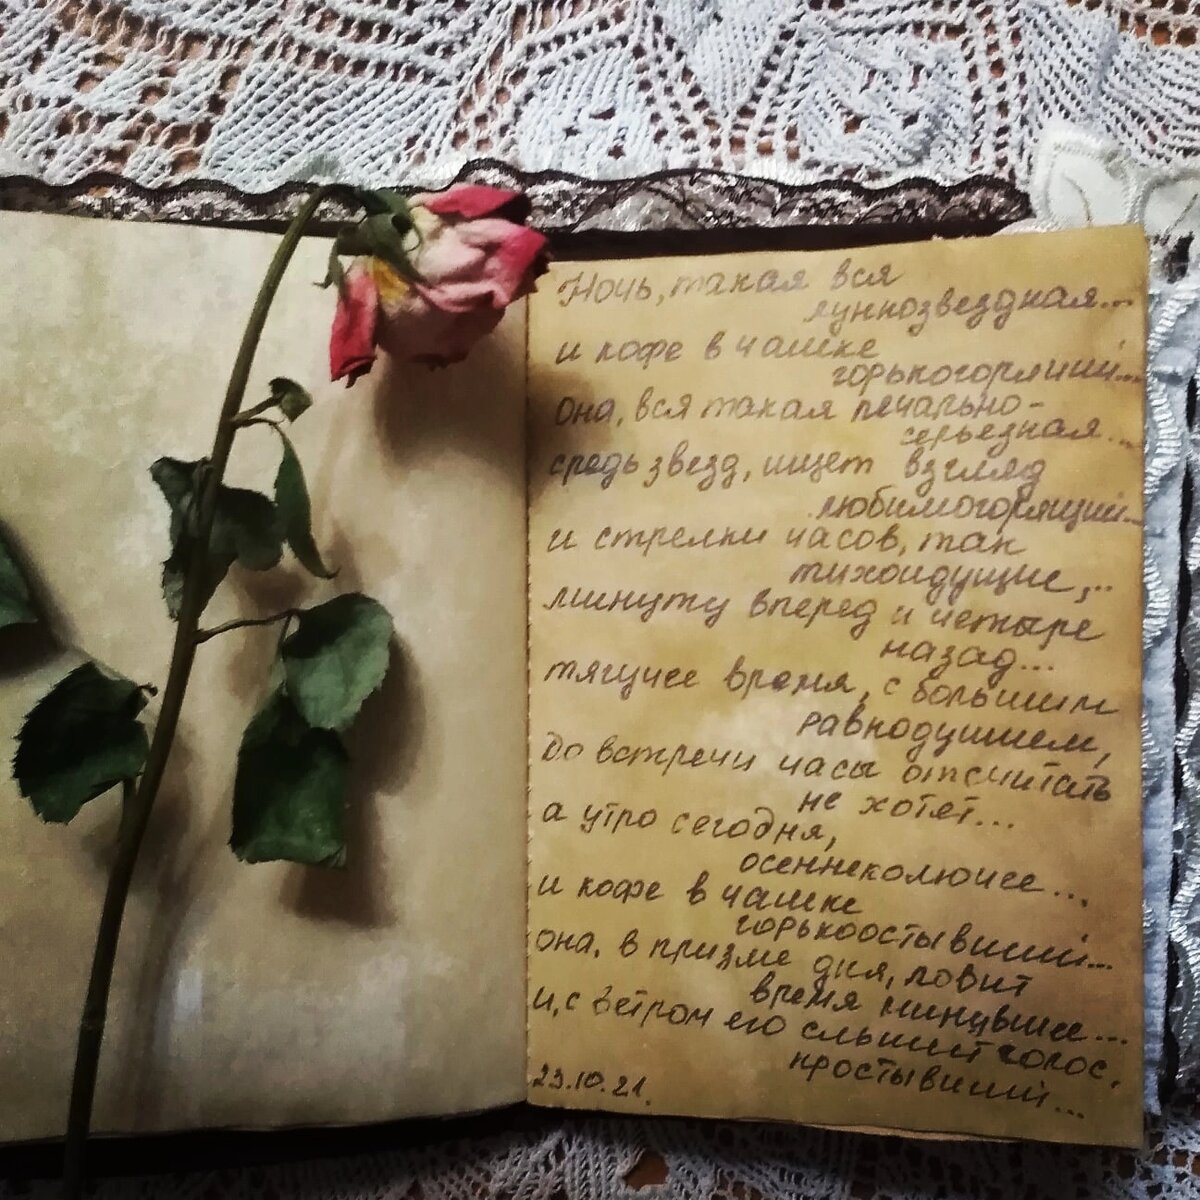 Ночь, такая вся
луннозвездная...
и кофе в чашке
горькогорлий...
она, вся такая печально-
серьезная...
средь звезд, ищет взгляд
любимогорящий...
и стрелки часов, так
тихоидущие,..
минуту вперед и четыре
назад...
тягучее время, с большим
равнодушием,
до встречи часы отсчитать
не хотят...
а утро сегодня,
осеннеколючее...
и кофе в чашке
горькоостывший...
она, в призме дня, ловит
время минувшее...
и, с ветром его слышит голос,
простывший...
23.10.21.